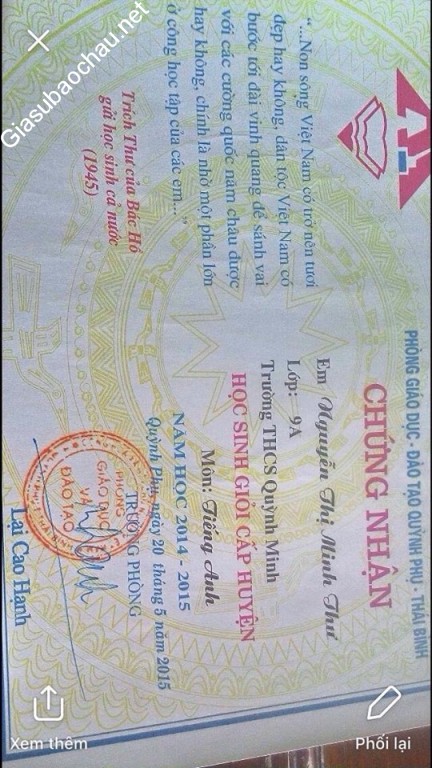 Giasubaochau.net
"...Non sông Việt Nam có trở nên tươi
đẹp hay không, dân tộc Việt Nam có
bước tới đài vinh quang để sánh vai
với các cường quốc năm châu được
hay không, chính là nhờ một phần lớn
ở công học tập của các em..."
Trích Thư của Bác Hồ
gửi học sinh cả nước
(1945)
PHÒNG GIÁO DỤC - ĐÀO TẠO QUỲNH PHỤ - THÁI BÌNH
CHỨNG NHẬN
Em Nguyễn Thị Minh Thư
Lớp: 9A
Trường THCS Quỳnh Minh
HỌC SINH GIỎI CẤP HUYỆN
Môn: Tiếng Anh
NĂM HỌC 2014 - 2015
Quỳnh Phụ, ngày 20 tháng 5 năm 2015
TRƯỞNG PHÒNG
PHÒNG
GIÁO DỤC
VÀ
ĐÀO TẠO
Lại Cao Hạnh
Xem thêm
Phối lại